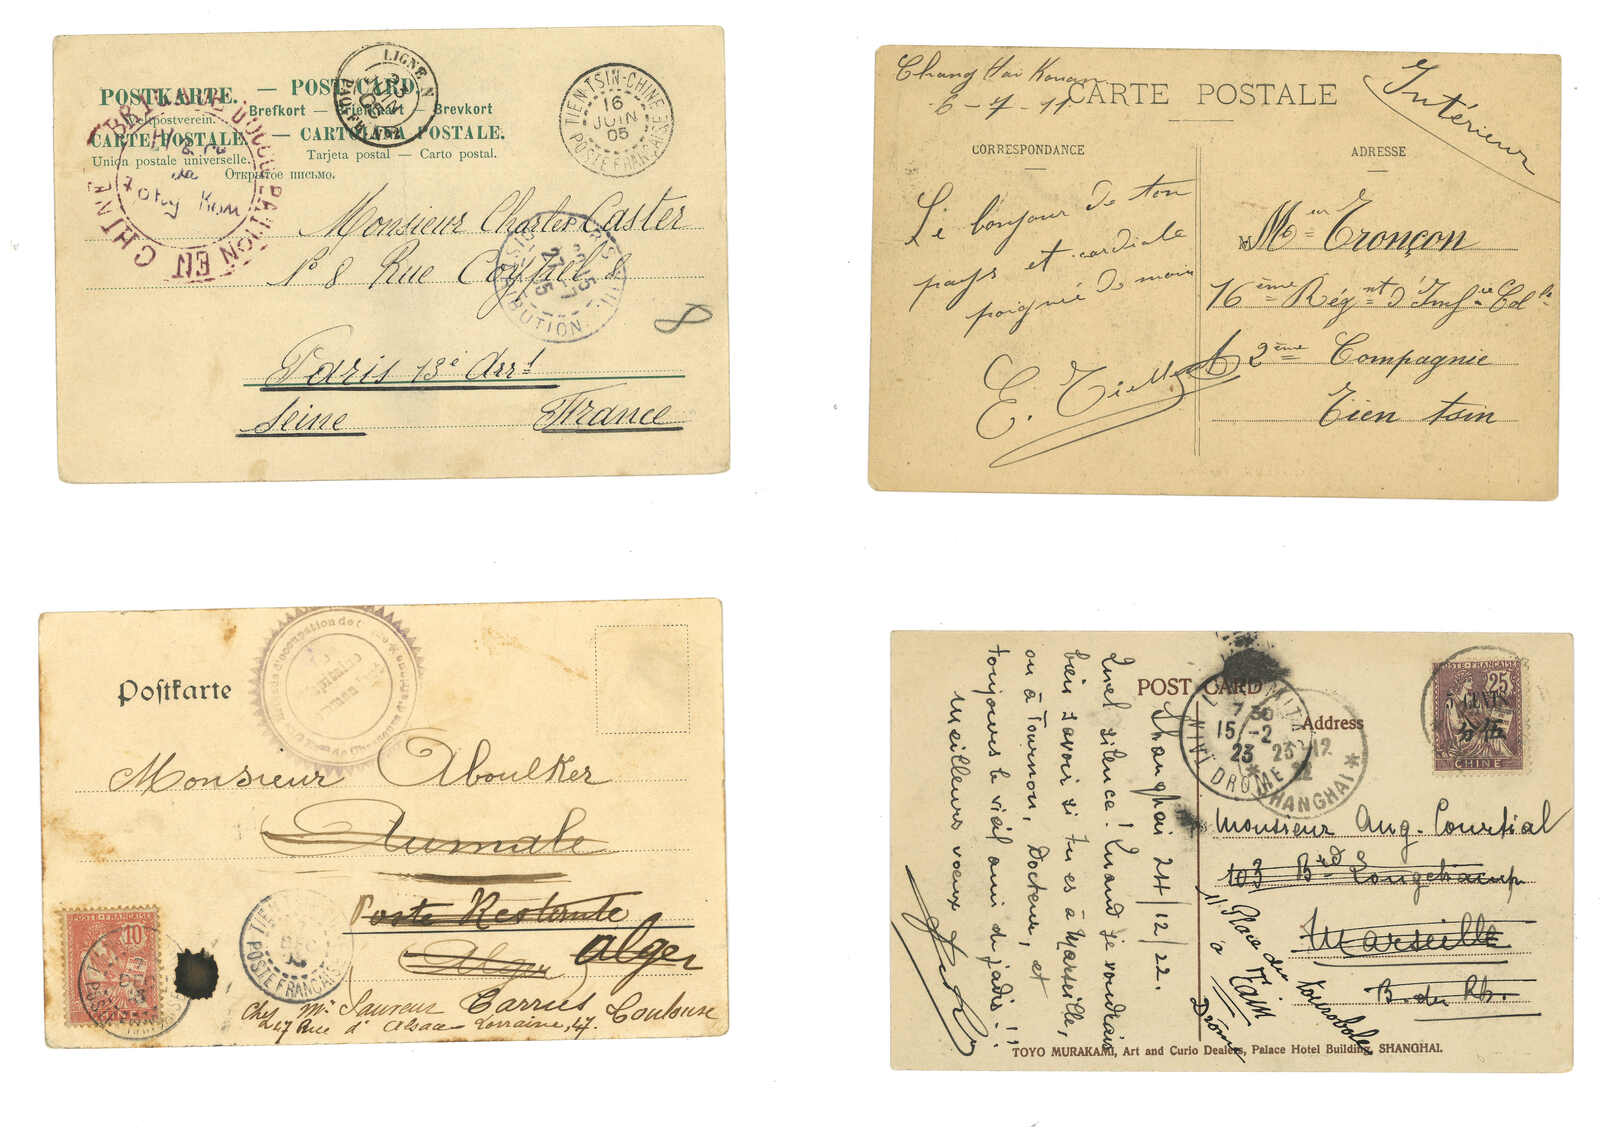 POSTKARTE. — POST CARD.
Weltpostverein. — Brefkort — Briefkaart — Brevkort
CARTE POSTALE — CARTOLINA POSTALE.
Union postale universelle. Tarjeta postal — Carto postal.
Открытое письмо.
BRIGADE D'OCCUPATION EN CHINE
LIGNE N
PAQ. FR.
TIEN-TSIN-CHINE
16
JUIN
05
POSTE FRANÇAISE
Monsieur Charles Caster
N° 8 Rue Coypel 8
DISTRIBUTION
Paris 13e Arrt
Seine France
8
Chang Hai Kouan
6-7-11
CARTE POSTALE
Intérieur
CORRESPONDANCE
ADRESSE
Le bonjour de ton
pays et cordiale
poignée de main
E.
Mr Tronçon
16ème Régnt d'Infie Colle
2ème Compagnie
Tien tsin
Postkarte
Monsieur Aboulker
Aumale
Poste Restante
Alger
alger
Chez Mr Sauveur Carrus
47 Rue d'Alsace-Lorraine, 47. Toulouse
POSTE FRANÇAISE
10
POSTE FRANÇAISE
POST CARD
Address
Shanghai 24/12/22.
Quel silence! Quand je voudrais
bien savoir si tu es à Marseille,
ou à Tournon, Docteur, et
toujours le vieil ami de jadis!
Meilleurs voeux
7 30
15-2
23
DROME
23-12
22
SHANGHAI
POSTE FRANÇAISE
25c
5 CENTS
分伍
CHINE
Monsieur Aug. Courtial
103 Bd Longchamp
Marseille
B. du Rh.
11 Place du
à Tain
Drôme
TOYO MURAKAMI, Art and Curio Dealers, Palace Hotel Building, SHANGHAI.